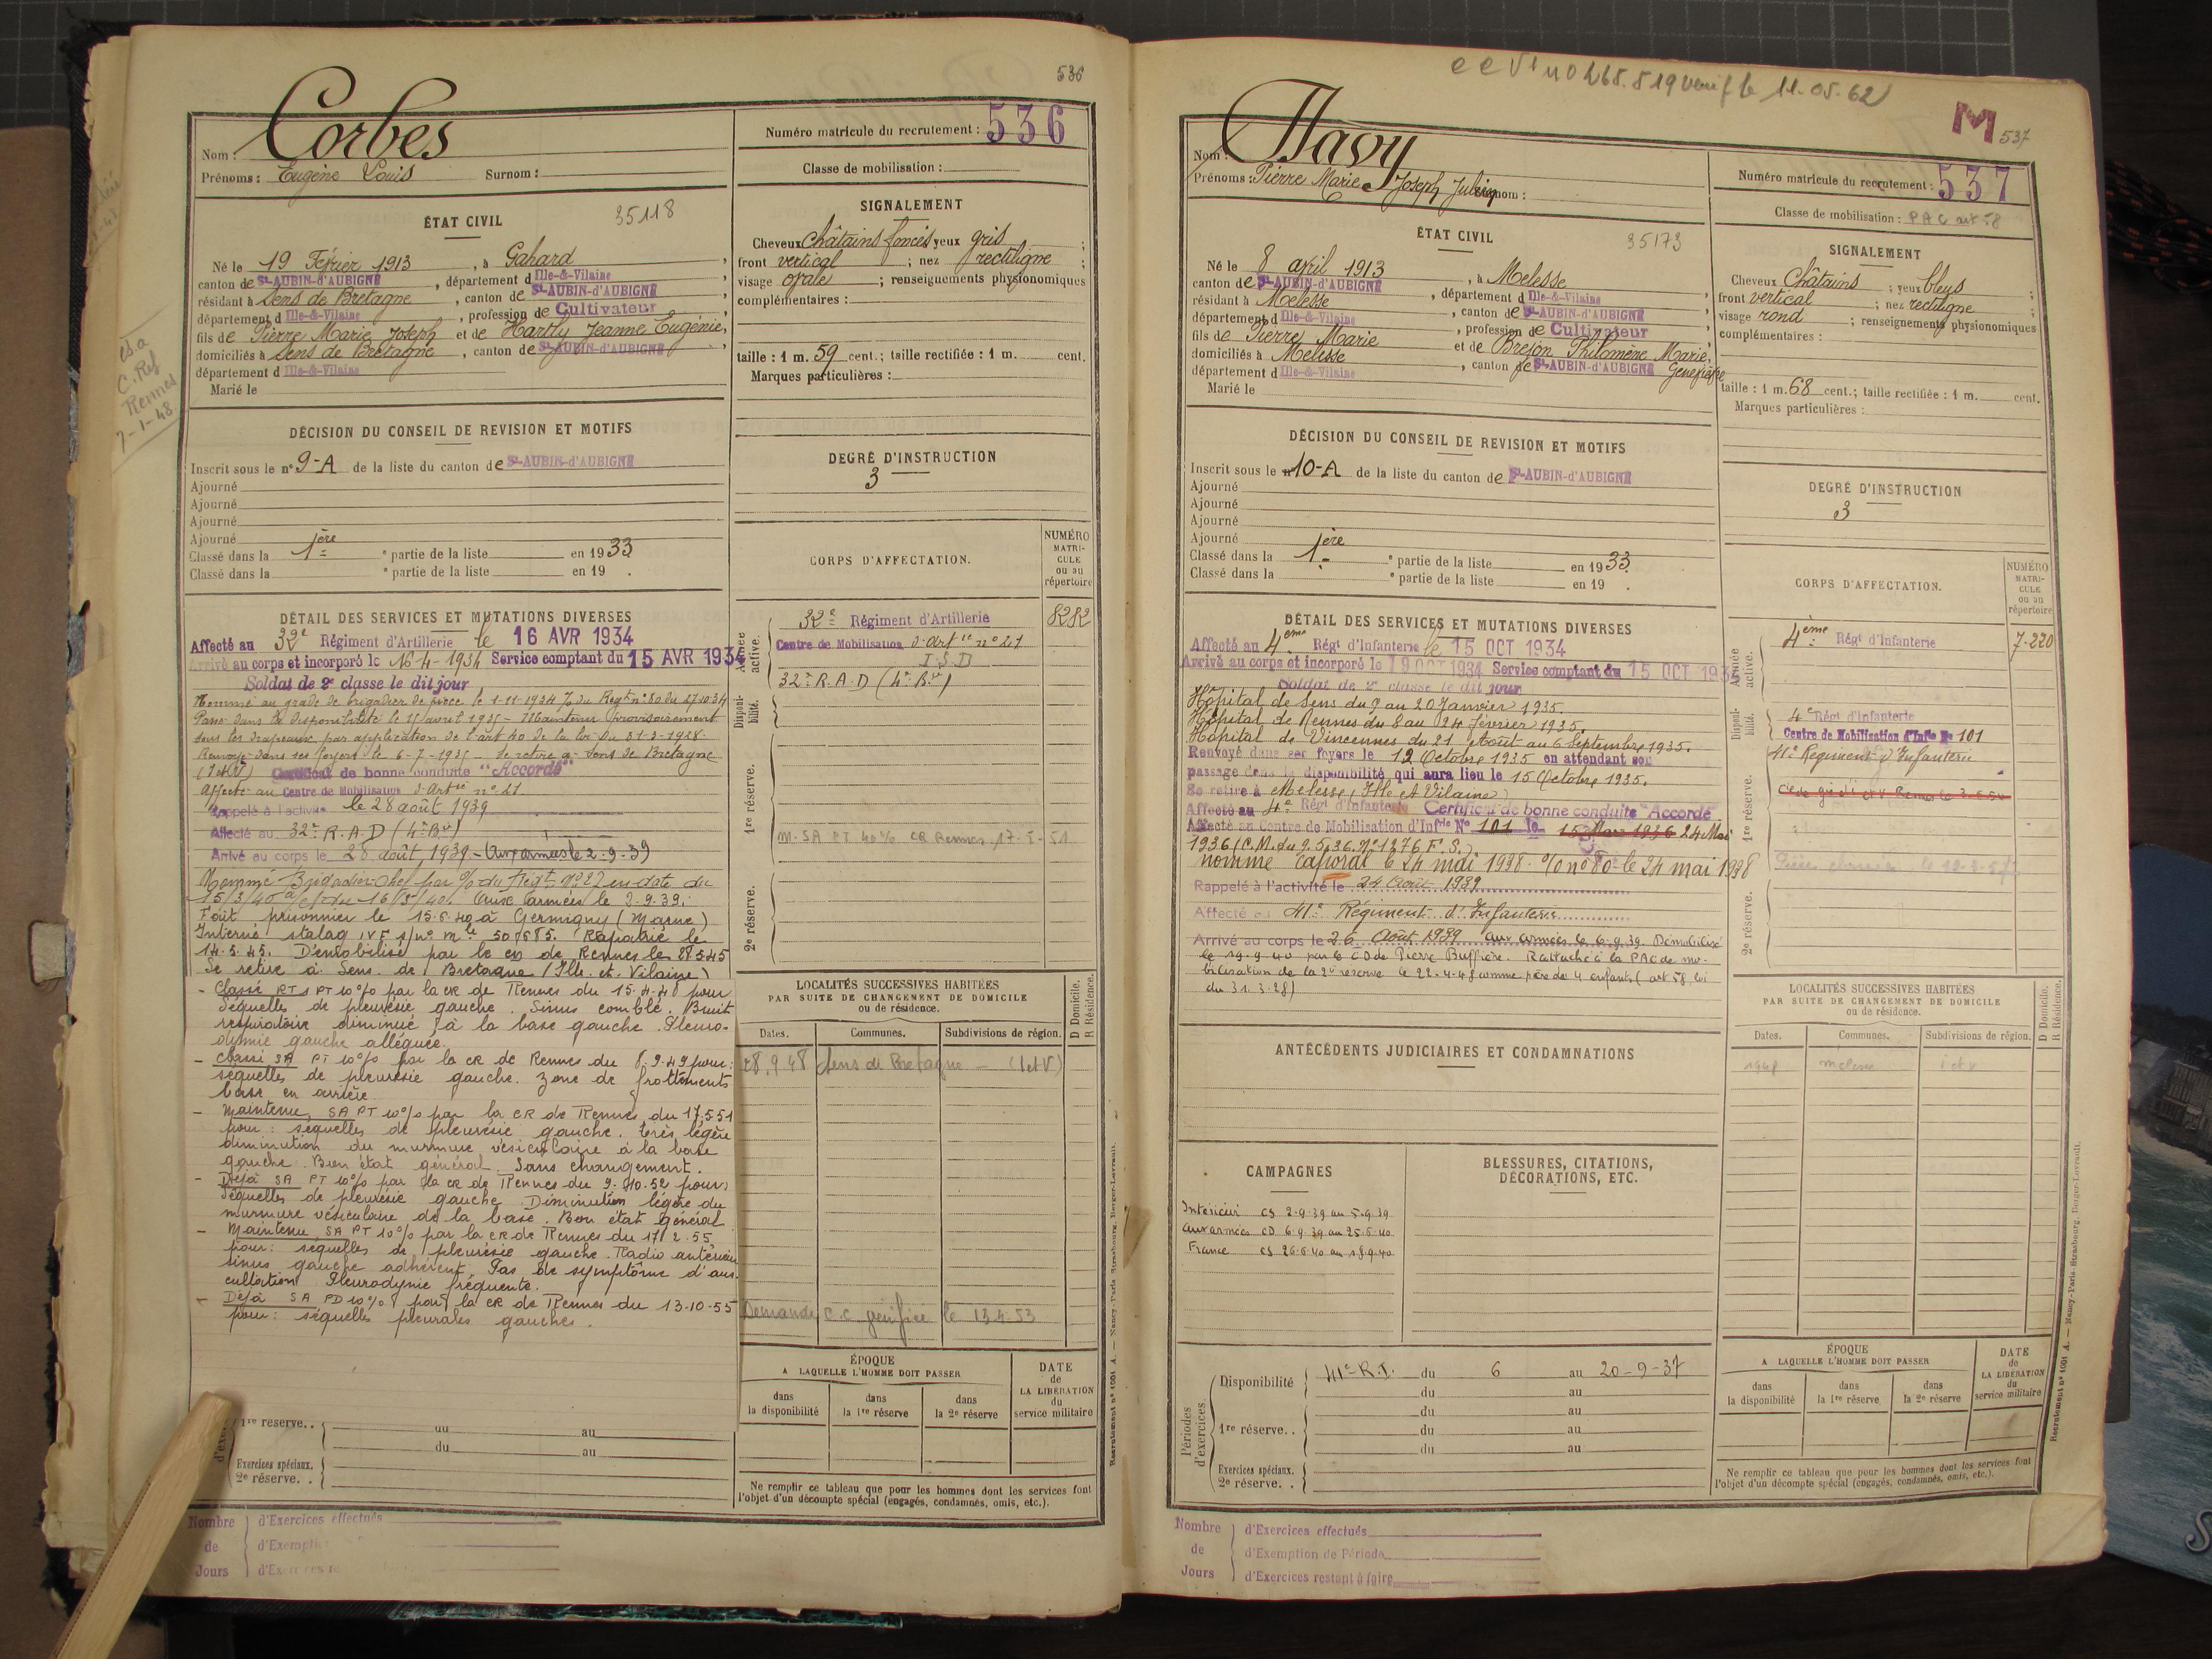 536
Corbes
Nom :
Prénoms : Eugène Louis Surnom :
Numéro matricule du recrutement : 536
Classe de mobilisation :
ÉTAT CIVIL
35118
Né le 19 Février 1913, à Gahard,
canton de St-AUBIN-d'AUBIGNÉ, département d Ille-&-Vilaine
résidant à Sens de Bretagne, canton de St-AUBIN-d'AUBIGNÉ
département d Ille-&-Vilaine, profession de Cultivateur
fils de Pierre Marie Joseph et de Hartly Jeanne Eugénie,
domiciliés à Sens de Bretagne, canton de St-AUBIN-d'AUBIGNÉ,
département d Ille-&-Vilaine
Marié le
SIGNALEMENT
Cheveux châtains foncés yeux gris ;
front vertical ; nez rectiligne ;
visage ovale ; renseignements physionomiques
complémentaires :
taille : 1 m. 59 cent.; taille rectifiée : 1 m. cent.
Marques particulières :
C. Réf
Rennes
7-1-48
DÉCISION DU CONSEIL DE REVISION ET MOTIFS
Inscrit sous le n° 9-A de la liste du canton de St-AUBIN-d'AUBIGNÉ
Ajourné
Ajourné
Ajourné
Ajourné
Classé dans la 1ère ° partie de la liste en 1933
Classé dans la ° partie de la liste en 19 .
DEGRÉ D'INSTRUCTION
3
DÉTAIL DES SERVICES ET MUTATIONS DIVERSES
Affecté au 32e Régiment d'Artillerie le 16 AVR 1934
Arrivé au corps et incorporé le 16-4-1934 Service comptant du 15 AVR 1934
Soldat de 2e classe le dit jour
Nommé au grade de brigadier de pièce le 1-11-1934 % du Regt n° 80 du 27-10-34
Passé dans la disponibilité le 15 avril 1935 - Maintenu provisoirement
sous les drapeaux par application de l'art 40 de la loi du 31-3-1928.
Renvoyé dans ses foyers le 6-7-1935 Se retire à Sens de Bretagne
(I et V) Certificat de bonne conduite "Accordé"
Affecté au Centre de Mobilisation d'Artie n° 21
Rappelé à l'activité le 28 août 1939
Affecté au 32e R.A.D (4e Bie)
Arrivé au corps le 28 août 1939 - Aux armées le 2-9-39
Nommé Brigadier-Chef par % du Regt n° 22 en date du
15/3/40 à c/ du 16/3/40. Aux armées le 2.9.39.
Fait prisonnier le 15.6.40 à Germigny (Marne)
Interné stalag IV F s/n° mle 50685. Rapatrié le
14.5.45. Démobilisé par le CD de Rennes le 28545
Se retire à Sens de Bretagne (Ille et Vilaine)
- Classé RT1 PT 10% par la CR de Rennes du 15.4.48 pour
séquelles de pleurésie gauche. Sinus comblé. Bruit
respiratoire diminué à la base gauche. Pleuro-
dynie gauche alléguée.
- Classé SA PT 10% par la CR de Rennes du 8.9.49 pour :
séquelles de pleurésie gauche. Zone de frottements
base en arrière
- Maintenu SA PT 10% par la CR de Rennes du 17.5.51
pour : séquelles de pleurésie gauche. très légère
diminution du murmure vésiculaire à la base
gauche. Bon état général. Sans changement.
- Déjà SA PT 10% par la CR de Rennes du 9.10.52 pour
séquelles de pleurésie gauche Diminution légère du
murmure vésiculaire de la base. Bon état général
- Maintenu SA PT 10% par la CR de Rennes du 17.2.55
pour : séquelles de pleurésie gauche. Radio antérieure
sinus gauche adhérent. Pas de symptôme d'aus-
cultation Pleurodynie fréquente.
- Déjà SA PD 10% par la CR de Rennes du 13-10-55
pour : séquelles pleurales gauches.
CORPS D'AFFECTATION.
NUMÉRO MATRI-CULE ou au répertoire
Armée active.
32e Régiment d'Artillerie 8282
Centre de Mobilisation d'Artie n° 21
32e R.A.D (4e Bie)
Disponi-bilité.
1re réserve.
M. SA PT 10% CR Rennes 17-5-51
2e réserve.
LOCALITÉS SUCCESSIVES HABITÉES
PAR SUITE DE CHANGEMENT DE DOMICILE
ou de résidence.
D Domicile. R Résidence.
Dates. Communes. Subdivisions de région.
28.9.48 Sens de Bretagne - (I et V)
Demande C.C. vérifiée le 13.4.53
1re réserve. . du au
du au
Exercices spéciaux.
2e réserve. .
ÉPOQUE
A LAQUELLE L'HOMME DOIT PASSER
DATE de LA LIBÉRATION du service militaire
dans la disponibilité
dans la 1re réserve
dans la 2e réserve
Ne remplir ce tableau que pour les hommes dont les services font
l'objet d'un décompte spécial (engagés, condamnés, omis, etc.).
Nombre d'Exercices effectués
de d'Exemption
Jours d'Exercices
Recrutement n° 1001 A. — Nancy-Paris-Strasbourg, Berger-Levrault.
le 11.05.62
M 537
Havy
Nom :
Prénoms : Pierre Marie Joseph Julien
Numéro matricule du recrutement : 537
Classe de mobilisation : PAC art 58
ÉTAT CIVIL
35173
Né le 8 avril 1913, à Melesse
canton de St-AUBIN-d'AUBIGNÉ, département d Ille-&-Vilaine
résidant à Melesse, canton de St-AUBIN-d'AUBIGNÉ
département d Ille-&-Vilaine, profession de Cultivateur
fils de Pierre Marie et de Brejon Philomène Marie,
domiciliés à Melesse, canton de St-AUBIN-d'AUBIGNÉ Geneviève
département d Ille-&-Vilaine
Marié le
SIGNALEMENT
Cheveux châtains ; yeux bleus ;
front vertical ; nez rectiligne ;
visage rond ; renseignements physionomiques
complémentaires :
taille : 1 m. 68 cent.; taille rectifiée : 1 m. cent.
Marques particulières :
DÉCISION DU CONSEIL DE REVISION ET MOTIFS
Inscrit sous le n° 10-A de la liste du canton de St-AUBIN-d'AUBIGNÉ
Ajourné
Ajourné
Ajourné
Ajourné
Classé dans la 1ère ° partie de la liste en 1933.
Classé dans la ° partie de la liste en 19 .
DEGRÉ D'INSTRUCTION
3
DÉTAIL DES SERVICES ET MUTATIONS DIVERSES
Affecté au 4ème Régt d'Infanterie le 15 OCT 1934
Arrivé au corps et incorporé le 19 OCT 1934 Service comptant du 15 OCT 1934
Soldat de 2e classe le dit jour
Hôpital de Sens du 9 au 20 Janvier 1935.
Hôpital de Rennes du 8 au 24 février 1935.
Hôpital de Vincennes du 21 Août au 6 Septembre 1935.
Renvoyé dans ses foyers le 12 Octobre 1935 en attendant son
passage dans la disponibilité qui aura lieu le 15 Octobre 1935.
Se retire à Melesse (Ille et Vilaine)
Affecté au 4e Régt d'Infanterie Certificat de bonne conduite "Accordé"
Affecté au Centre de Mobilisation d'Infie N° 101 le 15 Mar 1936 24 Mai
1936 (C.M. du 9.5.36. N° 1276 F.S.)
nommé Caporal le 24 mai 1938. % n° 80 le 24 mai 1938
Rappelé à l'activité le 24 Août 1939
Affecté au 41e Régiment d'Infanterie
Arrivé au corps le 26 Août 1939 aux armées le 6-9-39 Démobilisé
le 19-9-40 par le CD de Pierre Buffière. Rattaché à la PAC de mo-
bilisation de la 2e réserve le 22-4-48 comme père de 4 enfants (art 58, loi
du 31.3.28)
CORPS D'AFFECTATION.
NUMÉRO MATRI-CULE ou au répertoire
Armée active.
4ème Régt d'Infanterie 7-220
Disponi-bilité.
4e Régt d'Infanterie
Centre de Mobilisation d'Infie N° 101
41e Régiment d'Infanterie
1re réserve.
2e réserve.
ANTÉCÉDENTS JUDICIAIRES ET CONDAMNATIONS
LOCALITÉS SUCCESSIVES HABITÉES
PAR SUITE DE CHANGEMENT DE DOMICILE
ou de résidence.
D Domicile. R Résidence.
Dates. Communes. Subdivisions de région.
1948 Melesse I et V
CAMPAGNES
Intérieur CS 2-9-39 au 5-9-39
Aux armées CD 6-9-39 au 25-6-40
France CS 26-6-40 au 18-9-40
BLESSURES, CITATIONS,
DÉCORATIONS, ETC.
Périodes d'exercices.
Disponibilité 41e R.I. du 6 au 20-9-37
du au
du au
1re réserve. . du au
du au
Exercices spéciaux.
2e réserve. .
ÉPOQUE
A LAQUELLE L'HOMME DOIT PASSER
DATE de LA LIBÉRATION du service militaire
dans la disponibilité
dans la 1re réserve
dans la 2e réserve
Ne remplir ce tableau que pour les hommes dont les services font
l'objet d'un décompte spécial (engagés, condamnés, omis, etc.).
Nombre d'Exercices effectués
de d'Exemption de Période
Jours d'Exercices restant à faire
Recrutement n° 1001 A. — Nancy-Paris-Strasbourg, Berger-Levrault.